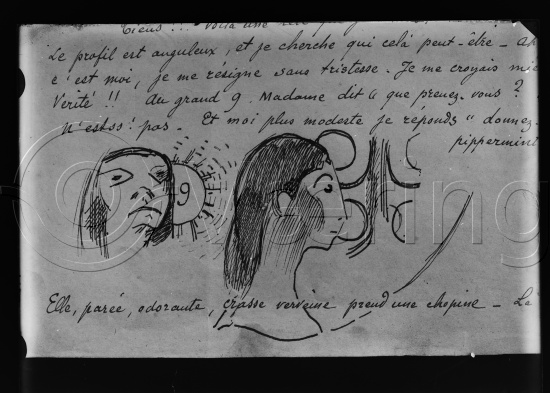 Tiens !!! Voilà une
Le profil est anguleux, et je cherche qui celà peut-être - Ah
c'est moi, je me résigne sans tristesse. Je me croyais mie
Verité !! Au grand 9. Madame dit « que prenez-vous ?
n'estss! pas. Et moi plus modeste je réponds " donnez-
pippermint
9
Elle, parée, odorante, crasse verveine prend une chopine - Le